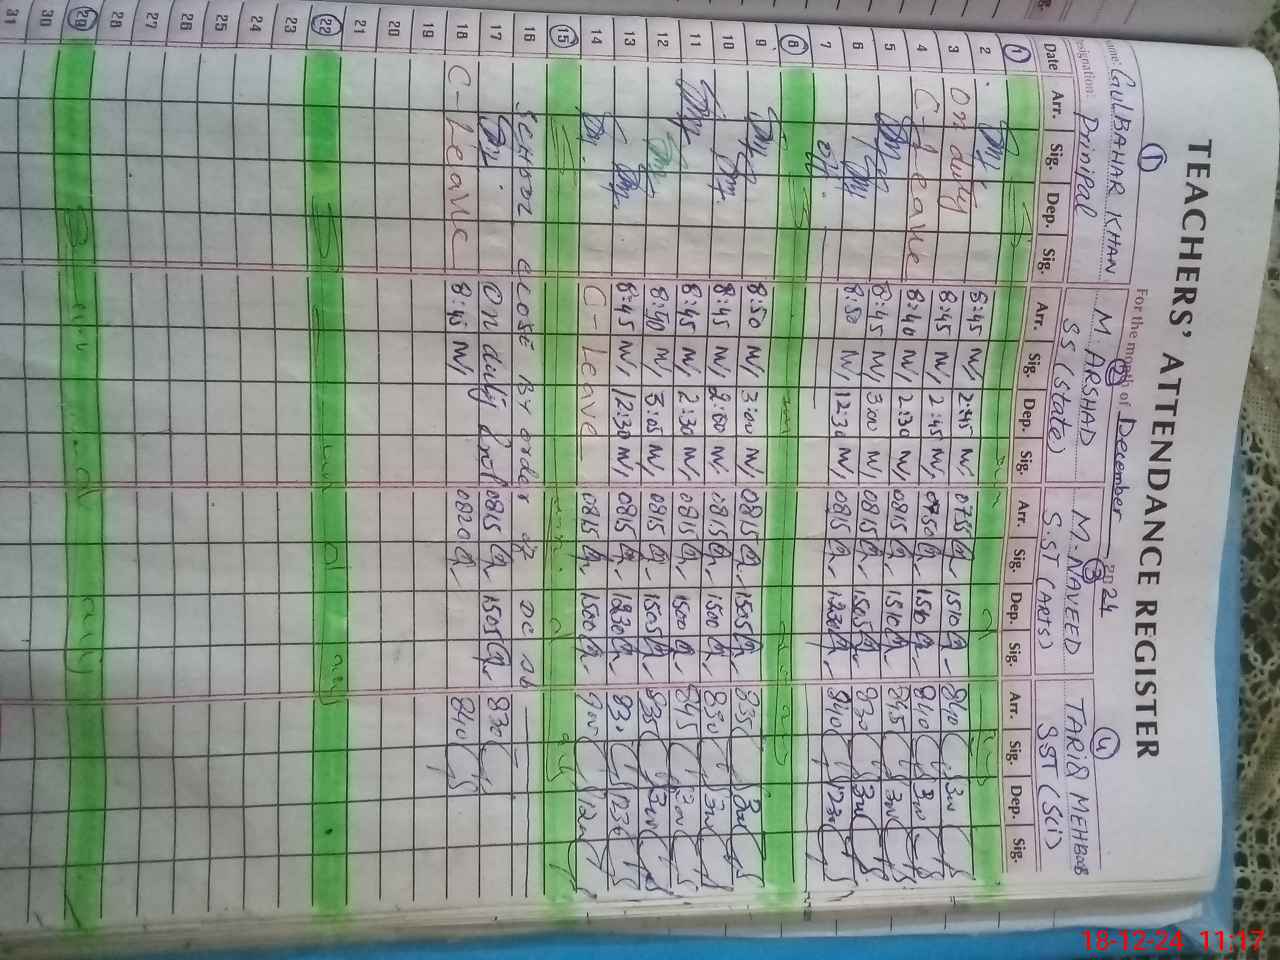 TEACHERS' ATTENDANCE REGISTER
For the month of December 2024
① ② ③ ④
Name: GULBAHAR KHAN M. ARSHAD M. NAVEED TARIQ MEHBOOB
Designation: Prinipal SS (State) S.ST (ARTS) SST (SCI)
Date Arr. Sig. Dep. Sig. Arr. Sig. Dep. Sig. Arr. Sig. Dep. Sig. Arr. Sig. Dep. Sig.
1 S u n d a y
2 8:45 2:45 0755 1510 840 300
3 On duty 8:45 2:45 0750 1510 840 300
4 C-Leave 8:40 2:30 0815 1510 845 300
5 8:45 3:00 0815 1505 830 300
6 8:50 12:30 0815 1230 840 1230
7
8 Sunday
9 8:50 3:00 0815 1505 835 300
10 8:45 2:00 0815 1500 830 300
11 8:45 2:30 0815 1500 845 300
12 8:50 3:05 0815 1505 835 300
13 8:45 12:30 0815 1230 830 1230
14 C-Leave 0815 1500 900 1200
15 Sunday
16 School close By order of DC sb
17 On duty 0815 1505 830
18 C-Leave 8:45 0820 840
19
20
21
22 Sunday
23
24
25
26
27
28
29 Sunday
30
31
18-12-24 11:17